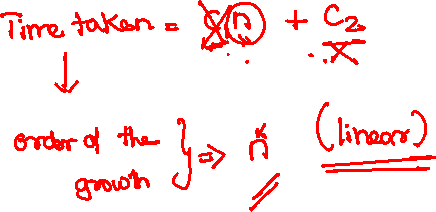 Time taken = C n + C2
order of the
growth } => n (linear)